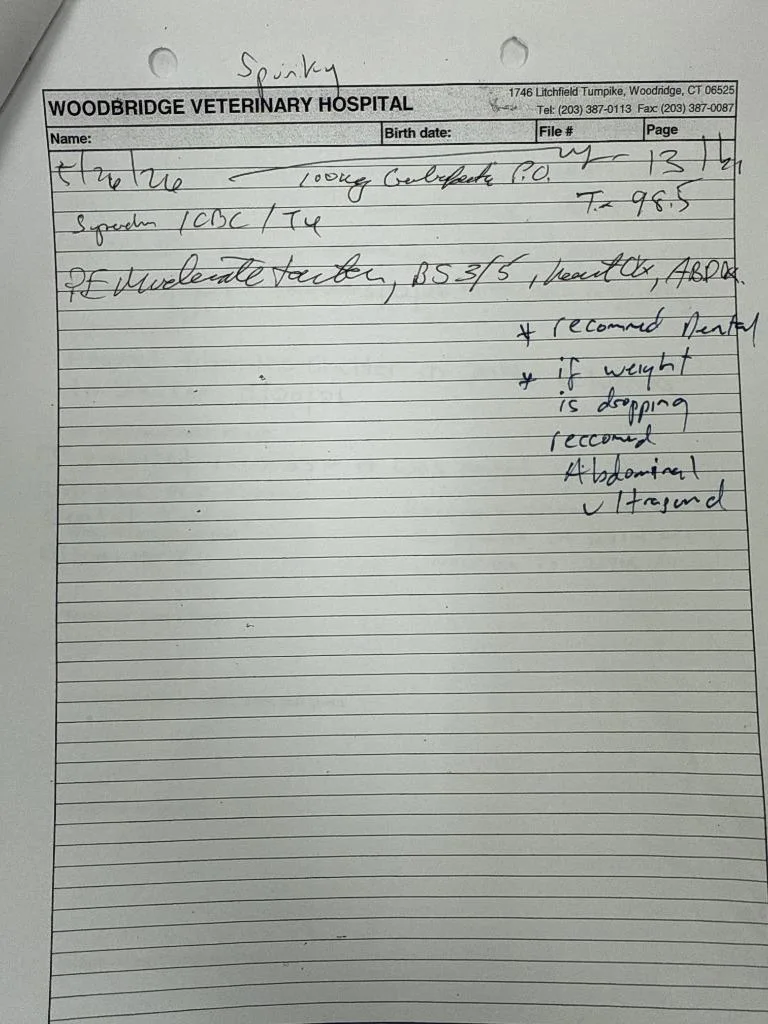 Spunky
1746 Litchfield Turnpike, Woodridge, CT 06525
WOODBRIDGE VETERINARY HOSPITAL
Tel: (203) 387-0113 Fax: (203) 387-0087
Name: Birth date: File # Page
5/26/26 100mg P.O. 13
T= 98.5
/CBC/T4
PE Moderate tartar, BS 3/5, heart OK, ABD OK.
* recommed Dental
* if weight
is dropping
reccomed
Abdominal
ultrasound